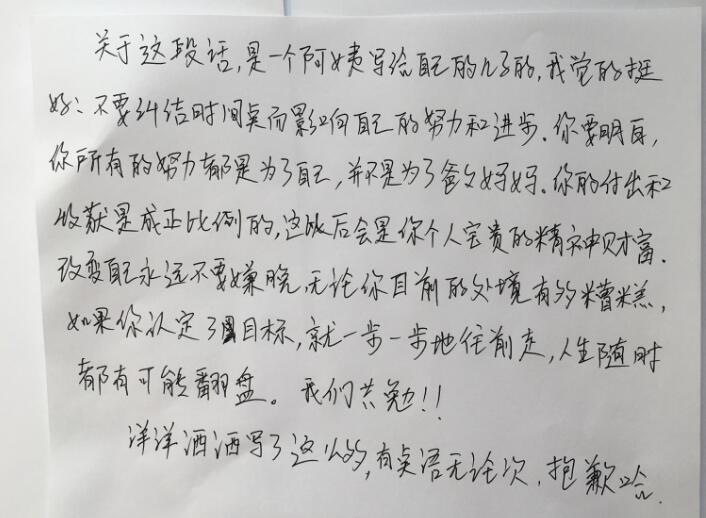 关于这段话,是一个阿姨写给自己的儿子的,我觉的挺
好:不要纠结时间点而影响自己的努力和进步.你要明白,
你所有的努力都是为了自己,并不是为了爸爸妈妈.你的付出和
收获是成正比例的,这些后会是你个人宝贵的精神财富.
改变自己永远不要嫌晚,无论你目前的处境有多糟糕,
如果你认定了目标,就一步一步地往前走,人生随时
都有可能翻盘。我们共勉!!
洋洋洒洒写了这么多,有点语无论次,抱歉哈.